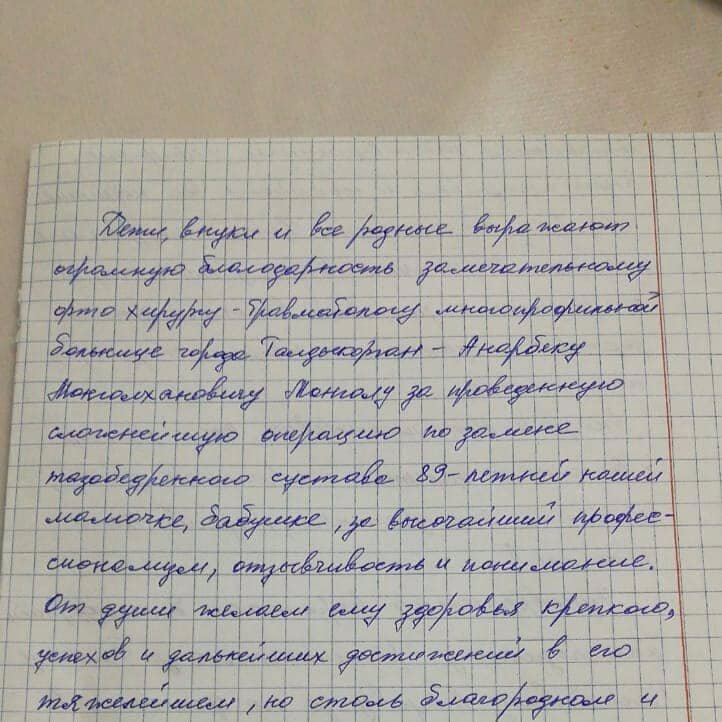 Дети, внуки и все родные выражают
огромную благодарность замечательному
орто хирургу - травматологу многопрофильной
больнице города Талдыкорган - Анарбеку
Монголхановичу Монголу за проведенную
сложнейшую операцию по замене
тазобедренного сустава 89-летней нашей
мамочке, бабушке, за высочайший профес-
сионализм, отзывчивость и понимание.
От души желаем ему здоровья крепкого,
успехов и дальнейших достижений в его
тяжелейшем, но столь благородном и